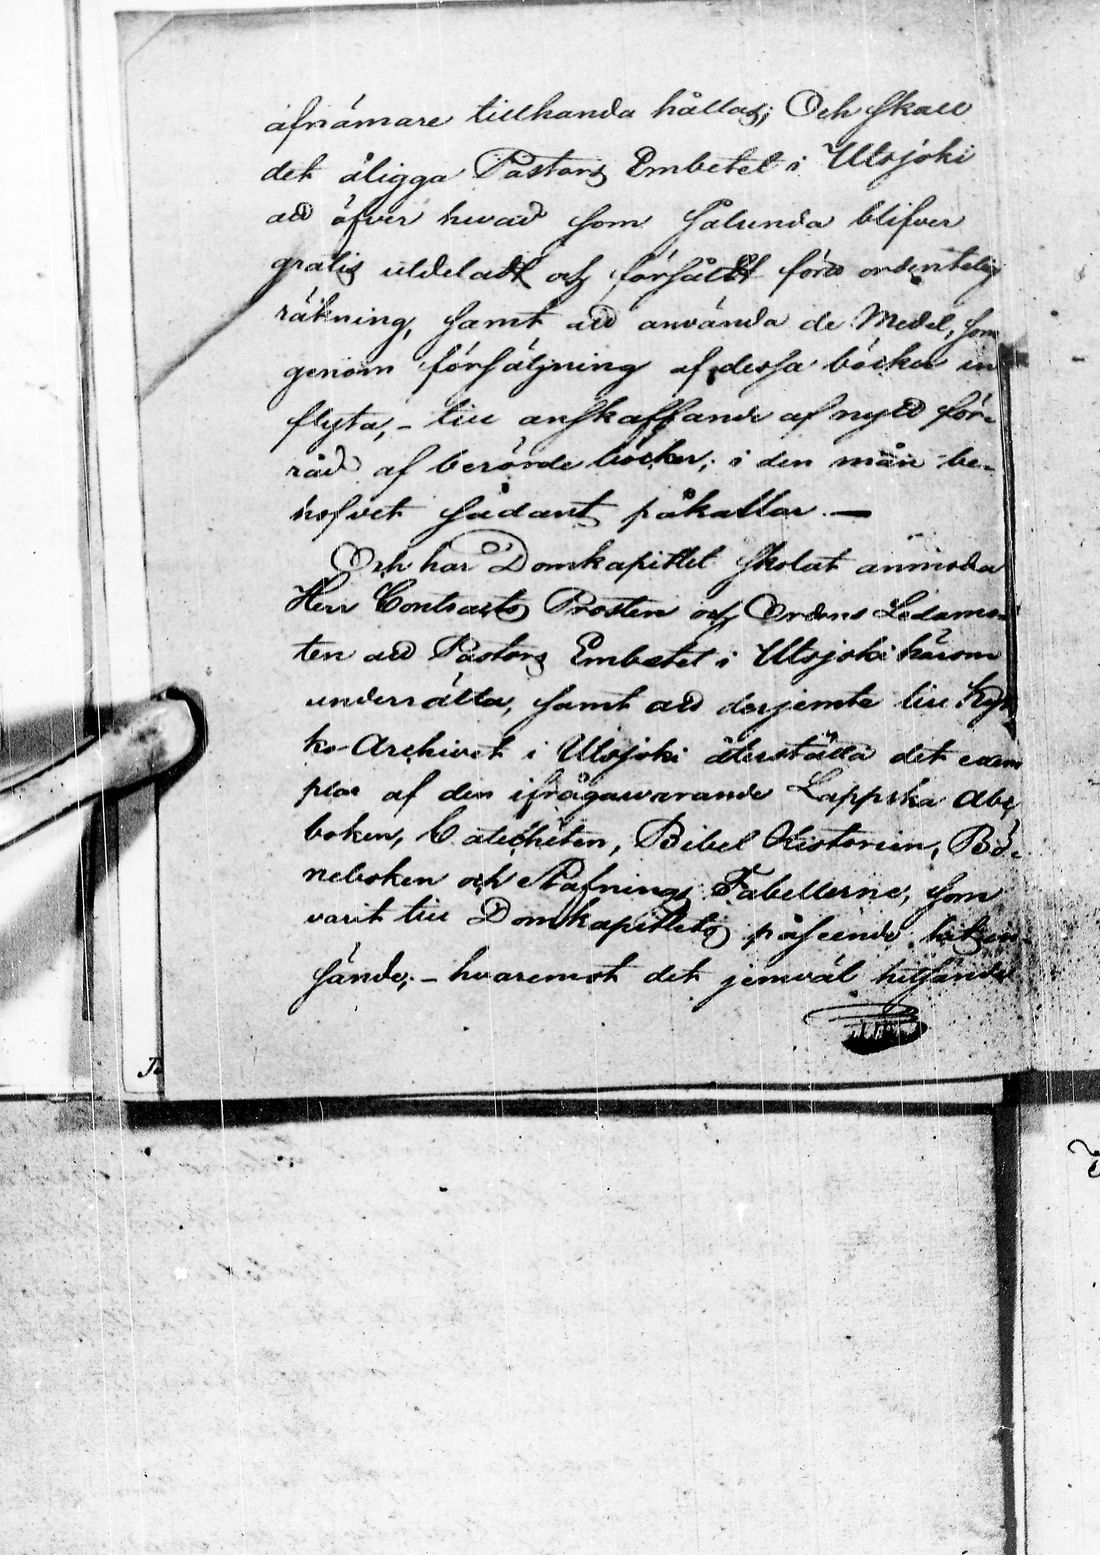 afnämare tillhanda hållas; Och skall
det åligga Pastors Embetet i Utsjoki
att öfver hvad som sålunda blifver
gratis utdeladt och försåldt föra ordentelig
räkning, samt att använda de Medel, som
genom försäljning af dessa böcker in
flyta, - till anskaffande af nytt för-
råd af berörde böcker, i den mån be-
hofvet sådant påkallar. —
Och har Domkapitlet skolat anmoda
Herr Contracts Prosten och Ordens Ledamo-
ten att Pastors Embetet i Utsjoki härom
underrätta, samt att derjemte till Kyr
ko-Archivet i Utsjoki återställa det exem
plar af den ifrågavarande Lappska Abc
boken, Catechesen, Bibel Historien, Bö-
neboken och Stafnings Tabellerne, som
varit till Domkapitlets påseende
sände; - hvaremot det jemväl hitsände